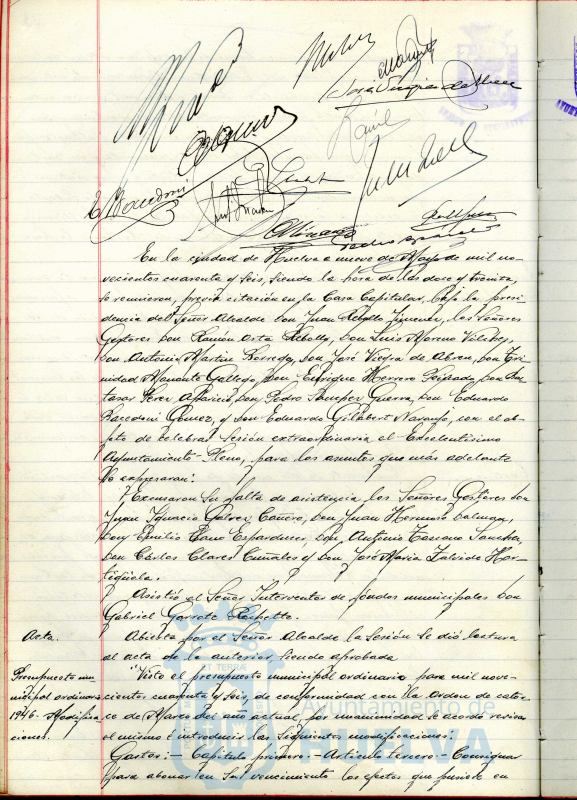 José Vieyra de Abreu
E. Bacedoni
En la ciudad de Huelva a nueve de Mayo de mil no-
vecientos cuarenta y seis, siendo la hora de las doce y treinta,
se reunieron, previa citación en la Casa Capitular, bajo la presi-
dencia del Señor Alcalde Don Juan Rebollo Jimenez, los Señores
Gestores Don Ramón Arta Rebollo, Don Luis Moreno Vilches,
Don Antonio Martin Borrego, Don José Vieyra de Abreu, Don Tri-
nidad Gallego, Don Enrique Herrero Don Bal-
tasar Perez Aparicio, Don Pedro Sempere Guerra, Don Eduardo
Bacedoni Gómez, y Don Eduardo Gilabert Naranjo, con el ob-
jeto de celebrar Sesión extraordinaria el Excelentísimo
Ayuntamiento-Pleno, para los asuntos que más adelante
se expresaran.
Excusaron su falta de asistencia los Señores Gestores Don
Juan Ignacio Galvez Cañero, Don Juan Hermoso
Don Emilio Cano Don Antonio Toscano Sanchez,
Don Carlos Clares y Don José Maria Hor-
tigüela.
Asistió el Señor Interventor de fondos municipales Don
Gabriel Garrote
Acta.
Abierta por el Señor Alcalde la Sesión se dió lectura
al acta de la anterior siendo aprobada
Presupuesto mu-
nicipal ordinario
1946. Modifica
ciones.
Visto el presupuesto municipal ordinario para mil nove-
cientos cuarenta y seis, de conformidad con la orden de cator-
ce de Marzo del año actual, por unanimidad se acordó revisar
el mismo é introducir las siguientes modificaciones:
Gastos:- Capítulo primero:- Artículo tercero:- Consignar
para abonar en su vencimiento los efectos que pusiese en
Ayuntamiento de
HUELVA